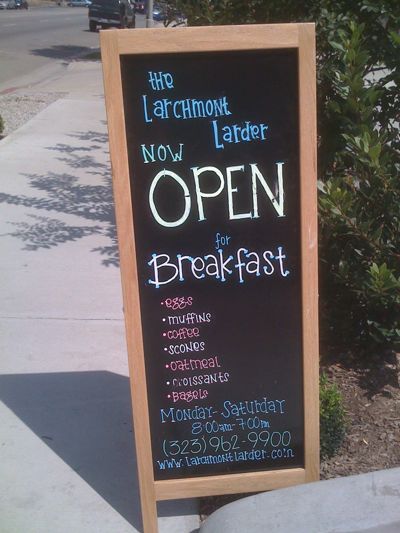 the
Larchmont
Larder
NOW
OPEN
for
Breakfast
• eggs
• muffins
• coffee
• scones
• oatmeal
• croissants
• bagels
Monday-Saturday
8:00am-7:00pm
(323) 962-9900
www.larchmontlarder.com